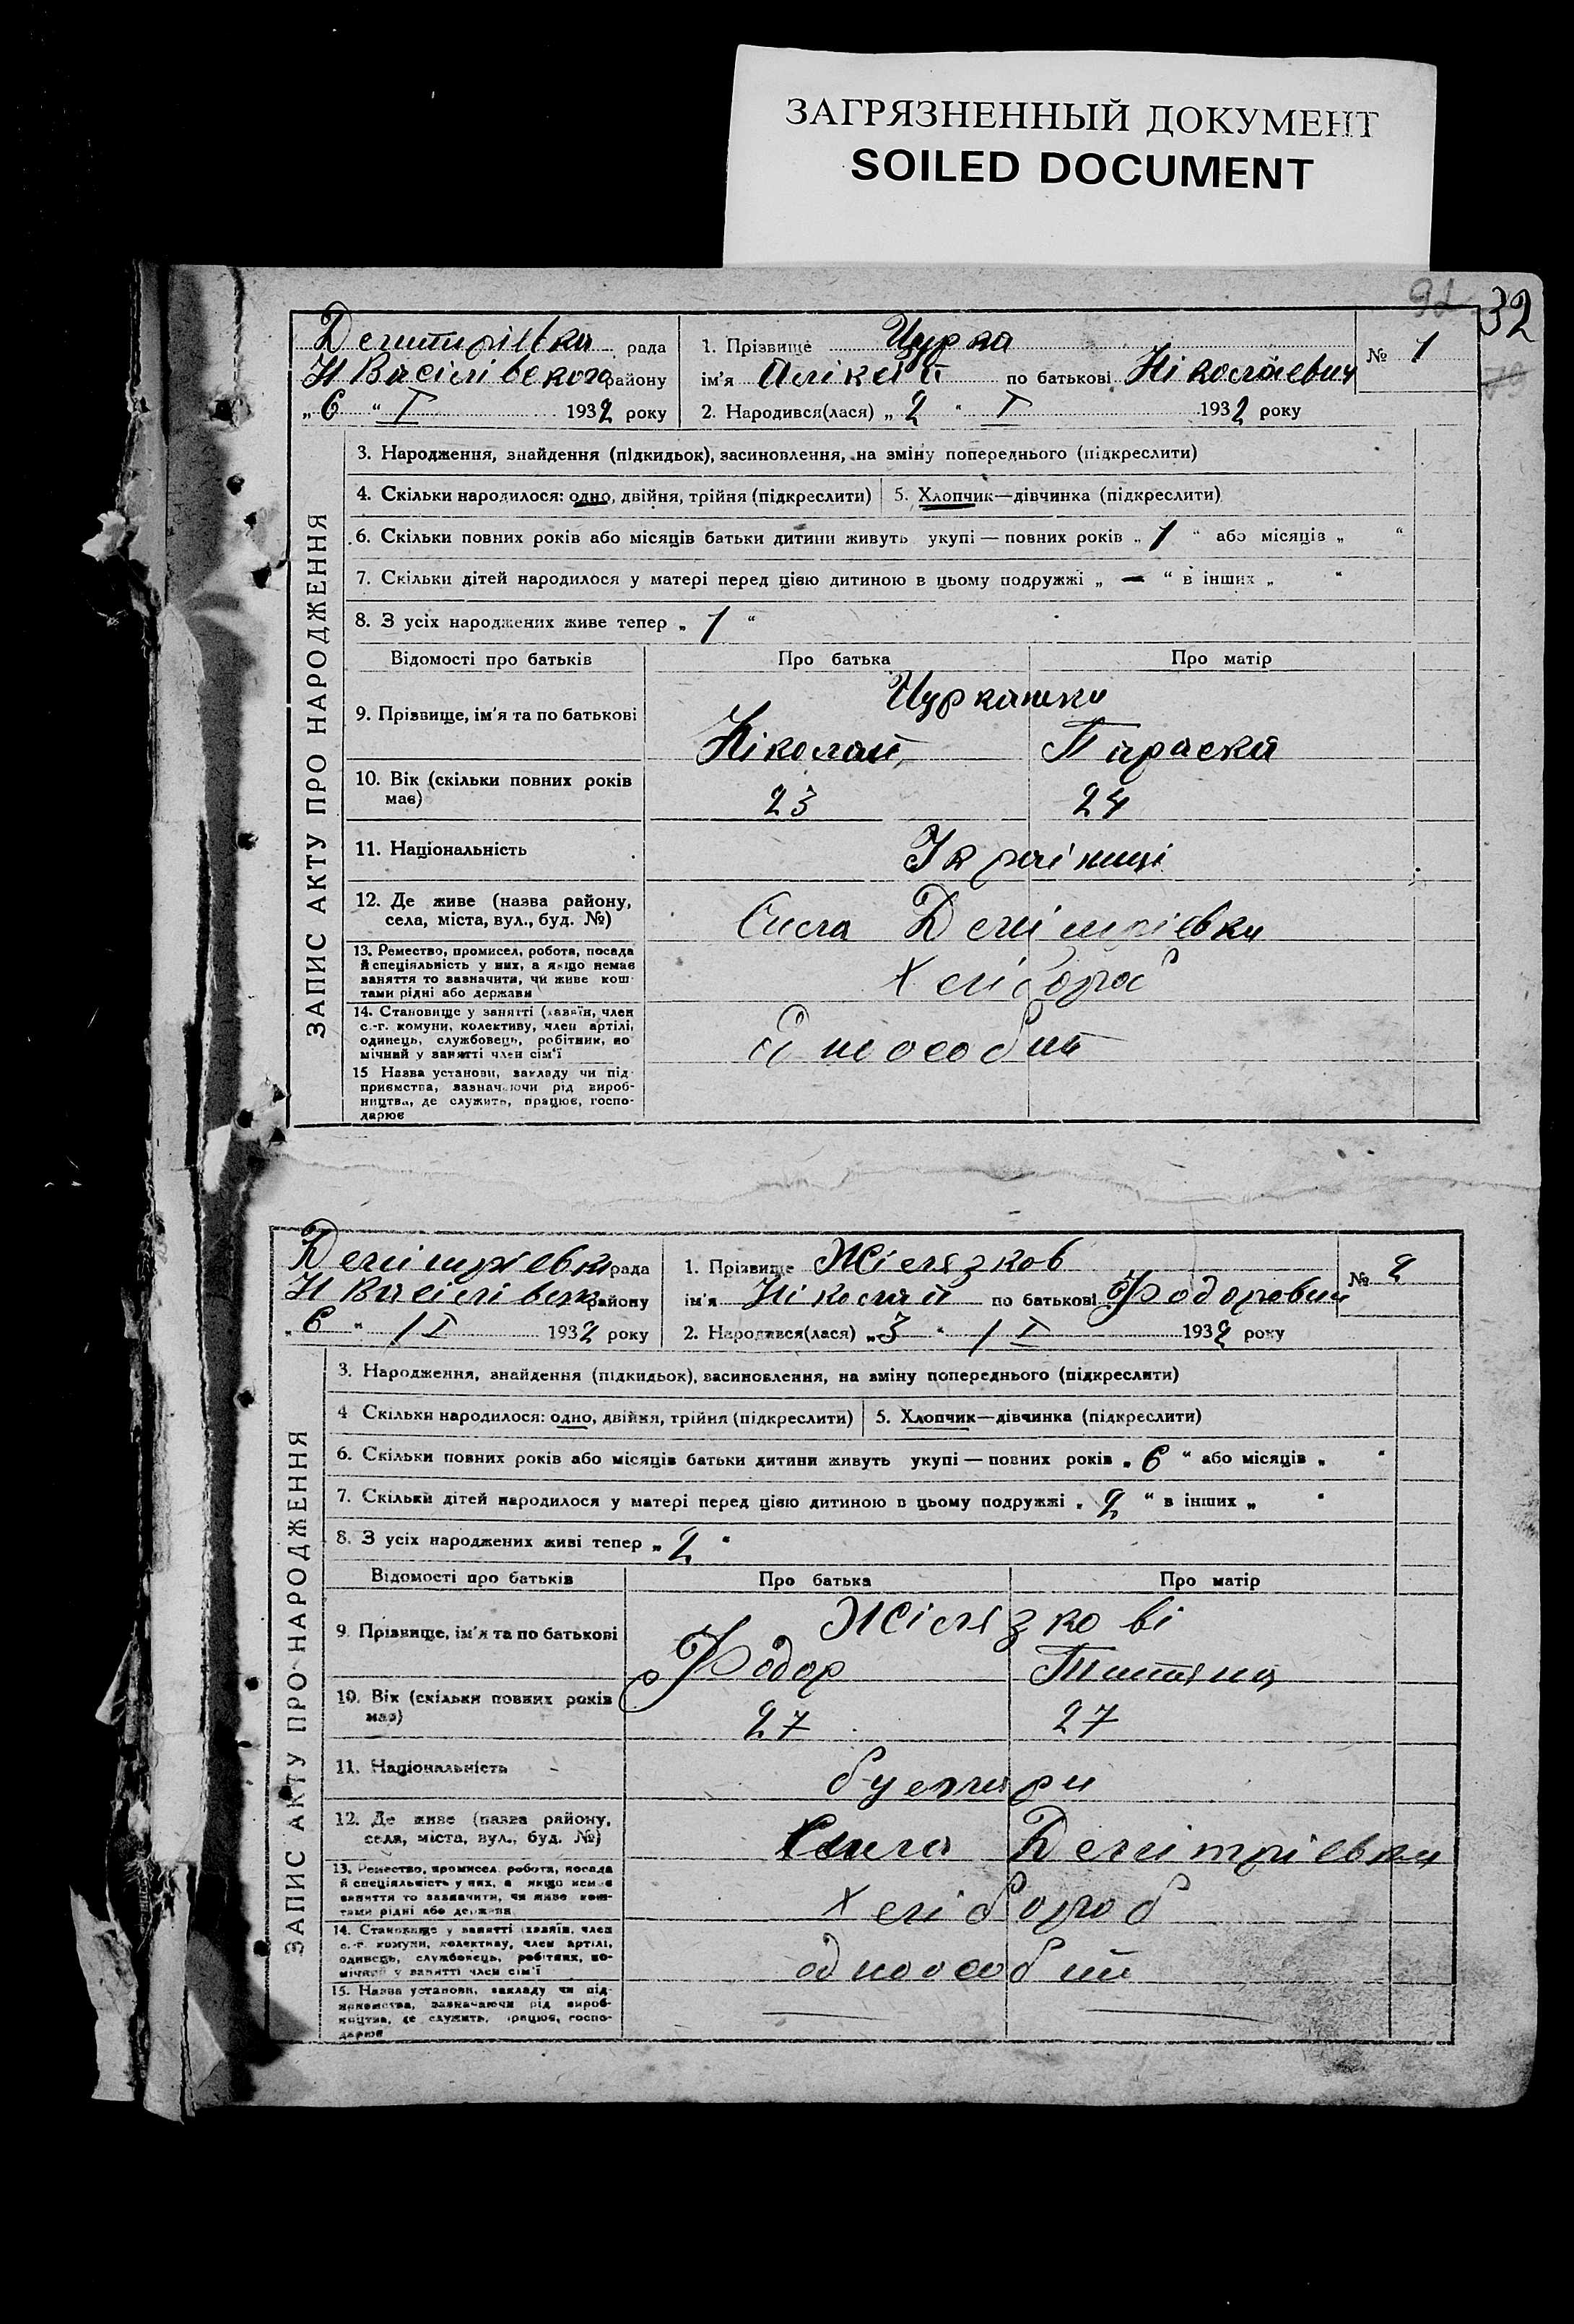 ЗАГРЯЗНЕННЫЙ ДОКУМЕНТ
SOILED DOCUMENT
92 32
Демитрівка рада
Н Васілівского району
„ 6 “ I 1932 року
1. Прізвище Цурка
ім'я Аліксій по батькові Ніколаевич
№ 1
2. Народився(лася) „ 2 “ I 1932 року
ЗАПИС АКТУ ПРО НАРОДЖЕННЯ
3. Народження, знайдення (підкидьок), засиновлення, на зміну попереднього (підкреслити)
4. Скільки народилося: одно, двійня, трійня (підкреслити) 5. Хлопчик—дівчинка (підкреслити)
6. Скільки повних років або місяців батьки дитини живуть укупі — повних років „ 1 “ або місяців „ “
7. Скільки дітей народилося у матері перед цією дитиною в цьому подружжі „ — “ в інших „ “
8. З усіх народжених живе тепер „ 1 “
Відомості про батьків Про батька Про матір
9. Прізвище, ім'я та по батькові
Ніколай Параска
10. Вік (скільки повних років
має)
23 24
11. Національність
Українці
12. Де живе (назва району,
села, міста, вул., буд. №)
Демітрієвка
13. Ремество, промисел, робота, посада
й спеціяльність у них, а якщо немає
заняття то зазначити, чи живе кош-
тами рідні або держави
Хліброб
14. Становище у занятті (хазяїн, член
с.-г. комуни, колективу, член артілі,
одинець, службовець, робітник, по
мічний у занятті член сім'ї
Одноособий
15 Назва установи, закладу чи під-
приємства, зазначаючи рід вироб-
ництва, де служить, працює, госпо-
дарює
Демітрієвка рада
Н Васілівськ району
„ 6 “ I 1932 року
1. Прізвище Жілязков
ім'я Ніколай по батькові Фодорович
№ 2
2. Народився(лася) „ 3 “ I 1932 року
ЗАПИС АКТУ ПРО НАРОДЖЕННЯ
3. Народження, знайдення (підкидьок), засиновлення, на зміну попереднього (підкреслити)
4 Скільки народилося: одно, двійня, трійня (підкреслити) 5. Хлопчик—дівчинка (підкреслити)
6. Скільки повних років або місяців батьки дитини живуть укупі — повних років „ 6 “ або місяців „ “
7. Скільки дітей народилося у матері перед цією дитиною в цьому подружжі „ 2 “ в інших „ “
8. З усіх народжених живі тепер „ 2 “
Відомості про батьків Про батька Про матір
Жілязкові
9. Прізвище, ім'я та по батькові
Фодор Татяна
10. Вік (скільки повних років
має)
27 27
11. Національність
булгари
12. Де живе (назва району,
села, міста, вул., буд. №)
Демітрієвка
13. Ремество, промисел, робота, посада
й спеціяльність у них, а якщо немає
заняття то зазначити, чи живе кош-
тами рідні або держави
Хлібороб
14. Становище у занятті (хазяїн, член
с.-г. комуни, колективу, член артілі,
одинець, службовець, робітник, по-
мічний у занятті член сім'ї
одноособий
15. Назва установи, закладу чи під-
приємства, зазначаючи рід вироб-
ництва, де служить, працює, госпо-
дарює